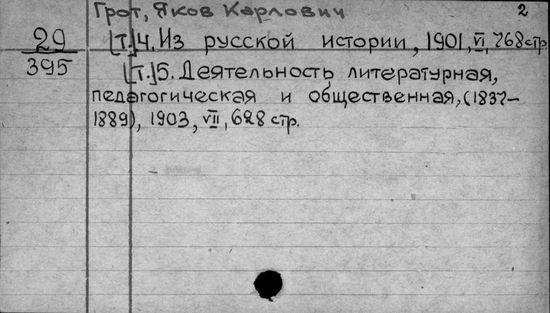 Грот, Яков Карлович 2
29
395
[т.]4. Из русской истории, 1901, VI, 768 стр.
[т.]5. Деятельность литературная,
педагогическая и общественная, (1837–
1889), 1903, VII, 628 стр.